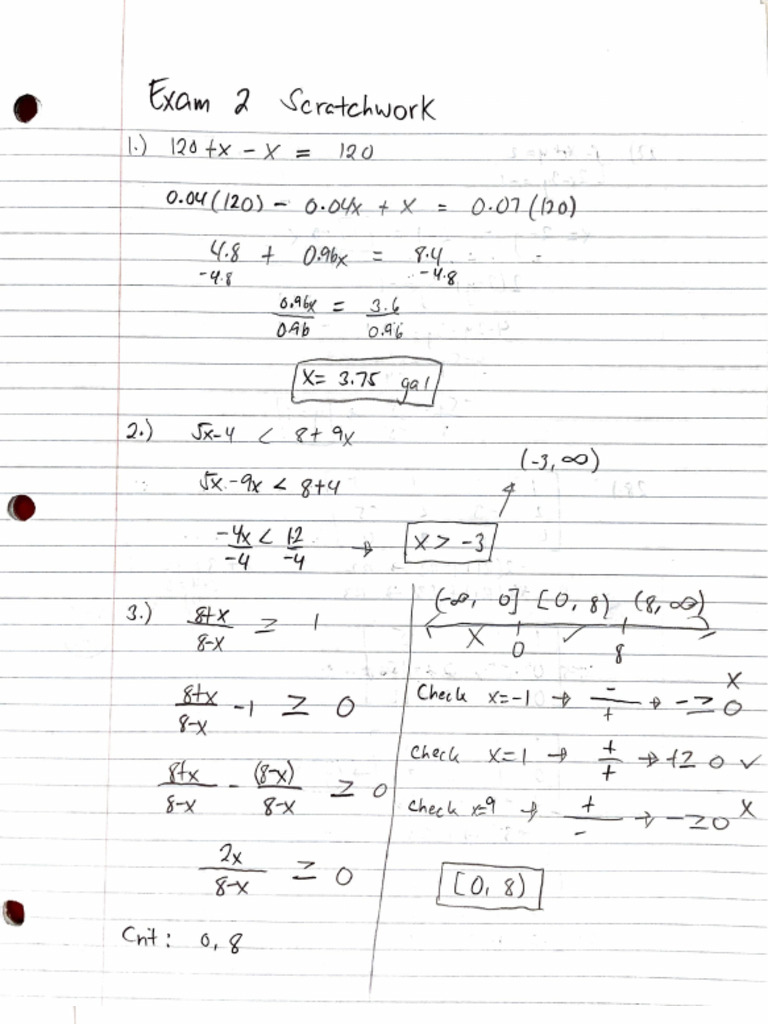 Exam 2 Scratchwork
1.) 120 + x - x = 120
0.04(120) - 0.04x + x = 0.07(120)
4.8 + 0.96x = 8.4
-4.8 -4.8
0.96x/0.96 = 3.6/0.96
x = 3.75 gal
2.) 5x-4 < 8+9x
5x-9x < 8+4
-4x/-4 < 12/-4 → x > -3
(-3, ∞)
3.) 8+x/8-x ≥ 1
8+x/8-x - 1 ≥ 0
8+x/8-x - (8-x)/8-x ≥ 0
2x/8-x ≥ 0
Crit: 0, 8
(-∞, 0] [0, 8) (8, ∞)
x ✓
0 8
Check x=-1 → -/+ → - ≥ 0 x
Check x=1 → +/+ → + ≥ 0 ✓
Check x=9 → +/- → - ≥ 0 x
[0, 8)